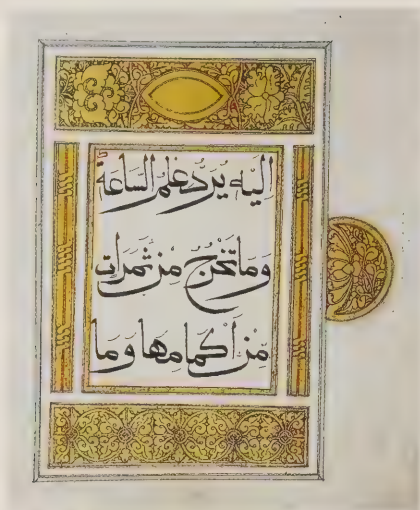 اِلَيْهِ يُرَدُّ عِلْمُ السَّاعَةِ
وَمَا تَخْرُجُ مِنْ ثَمَرَاتٍ
مِنْ اَكْمَامِهَا وَمَا